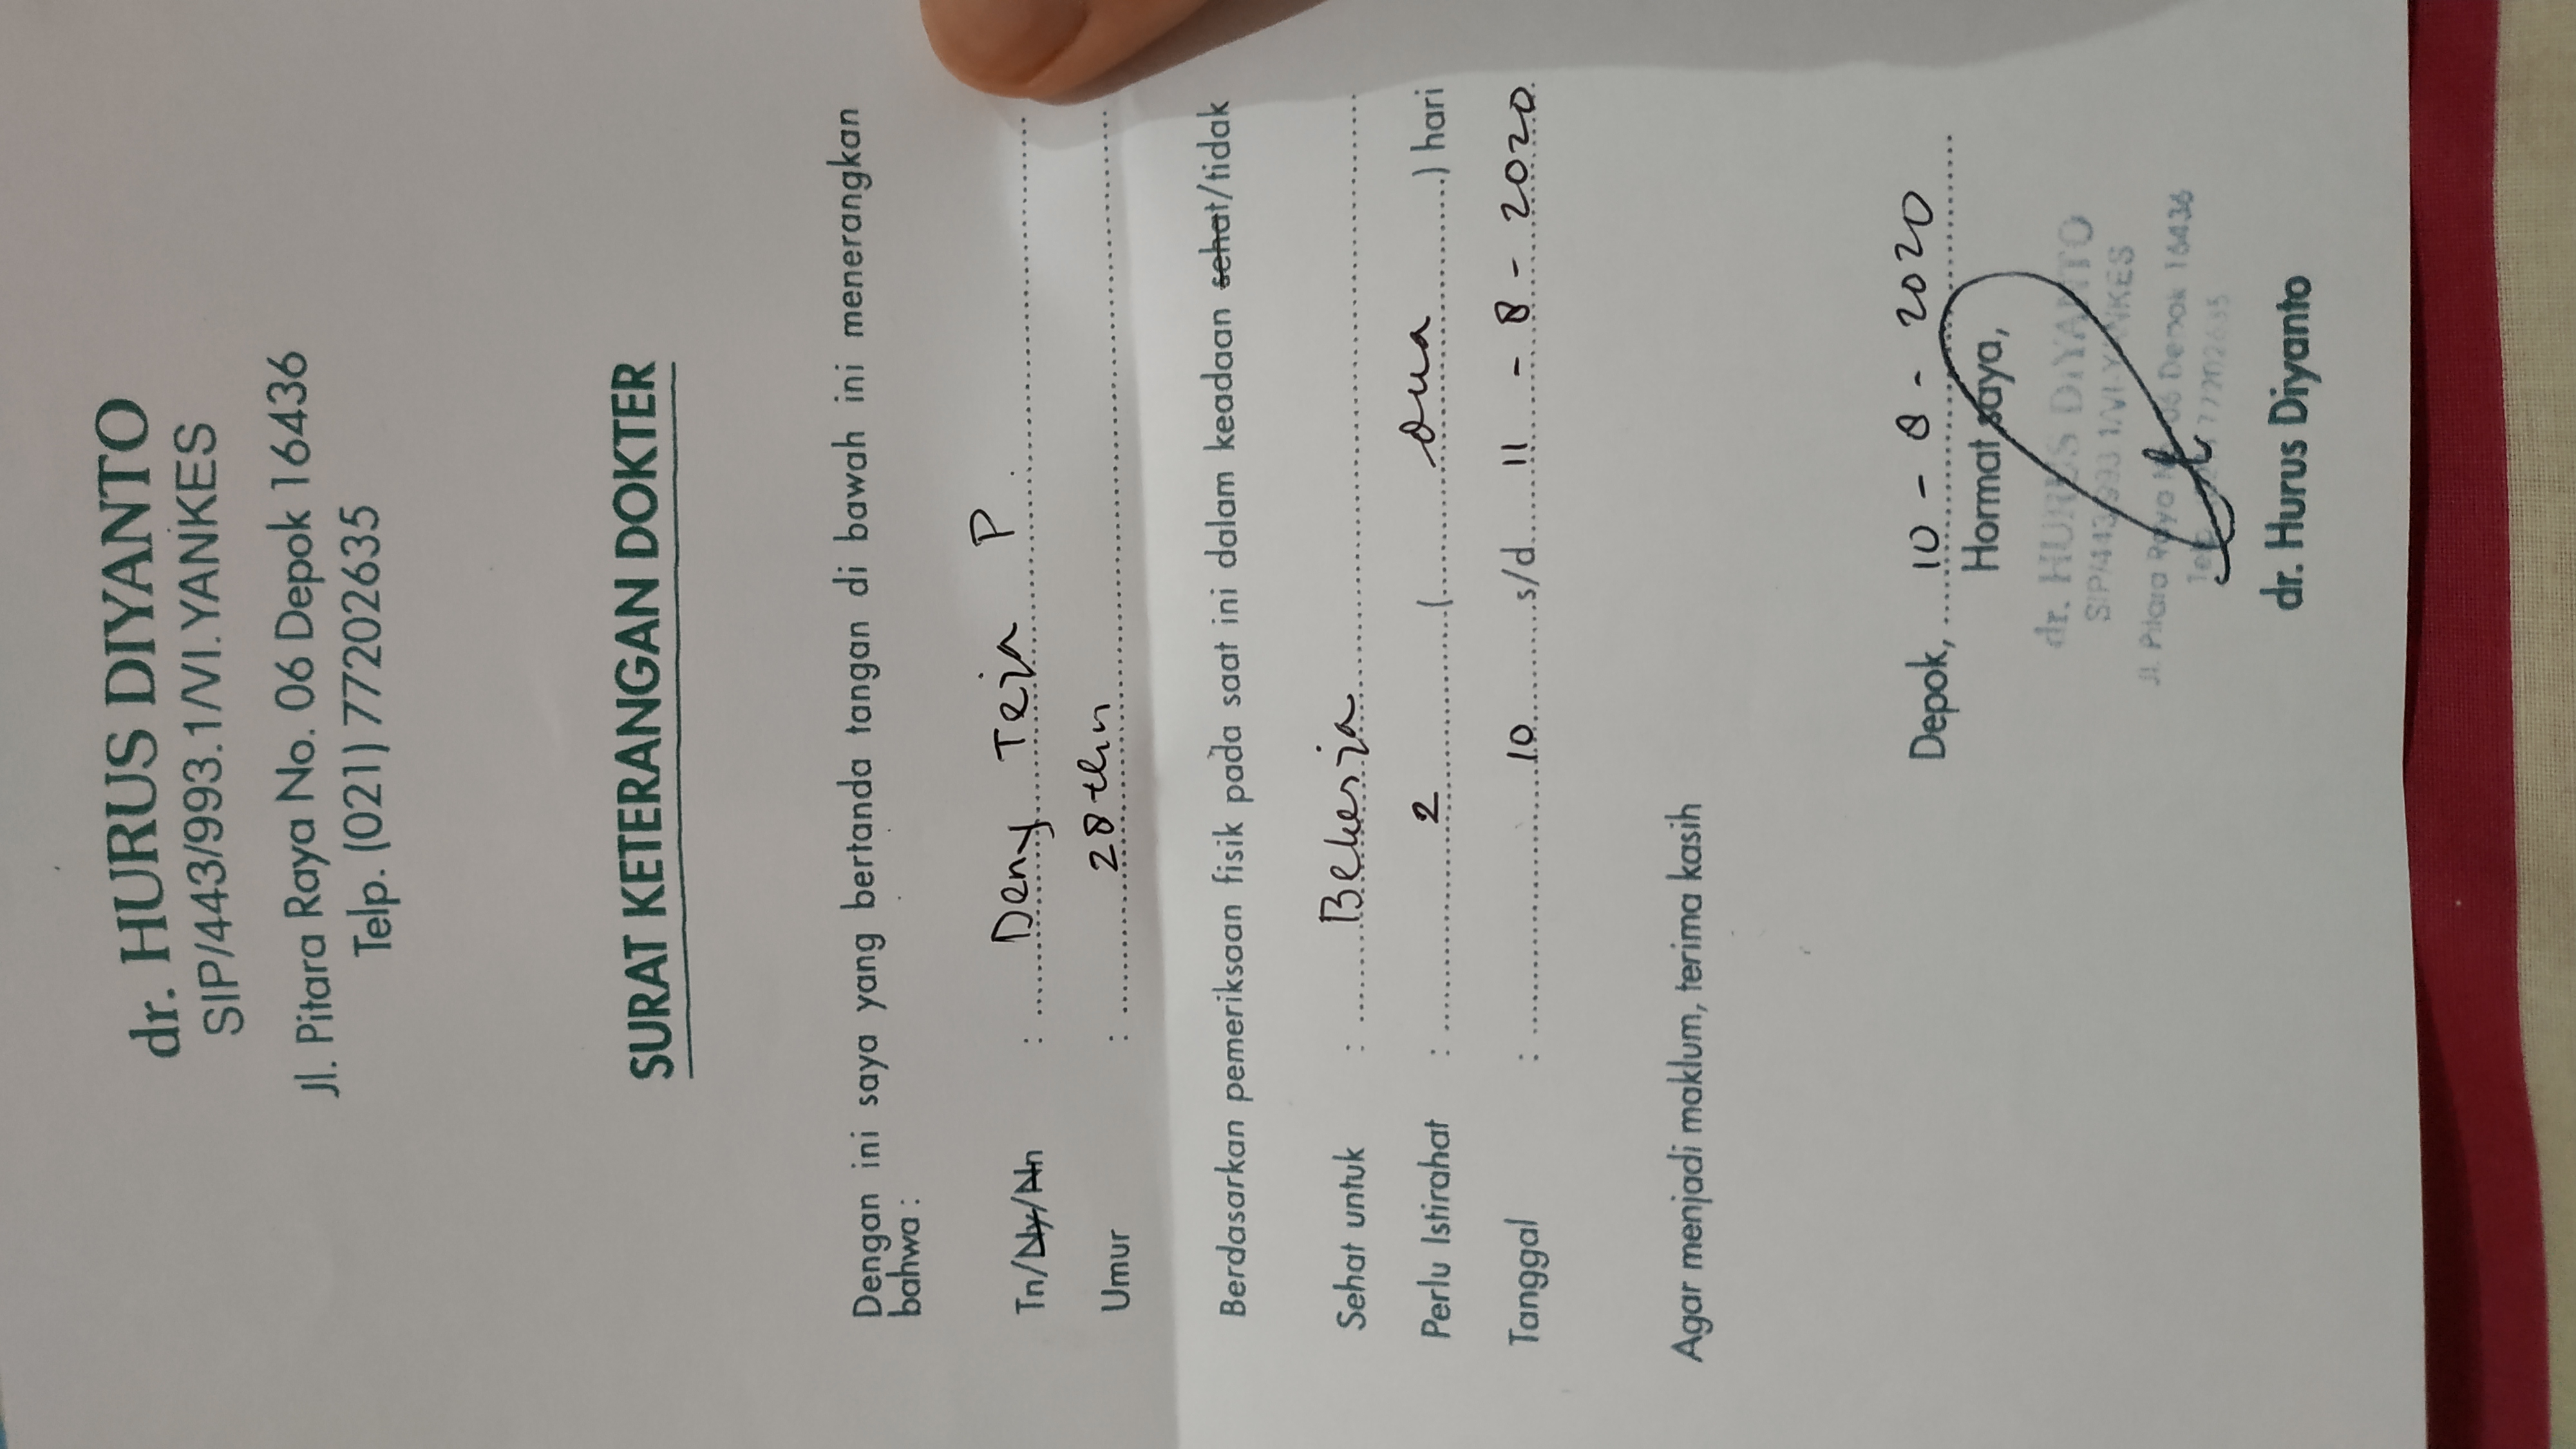 dr. HURUS DIYANTO
SIP/443/993.1/VI.YANKES
Jl. Pitara Raya No. 06 Depok 16436
Telp. (021) 77202635
SURAT KETERANGAN DOKTER
Dengan ini saya yang bertanda tangan di bawah ini menerangkan
bahwa :
Tn/Ny/Nn : Deny Teja P
Umur : 28 thn
Berdasarkan pemeriksaan fisik pada saat ini dalam keadaan sehat/tidak
Sehat untuk : Bekerja
Perlu Istirahat : 2 ( dua ) hari
Tanggal : 10 s/d 11 - 8 - 2020
Agar menjadi maklum, terima kasih
Depok, 10 - 8 - 2020
Hormat saya,
dr. HURUS DIYANTO
SIP/443/993.1/VI.YANKES
Jl. Pitara Raya No. 06 Depok 16436
Telp. (021) 77202635
dr. Hurus Diyanto